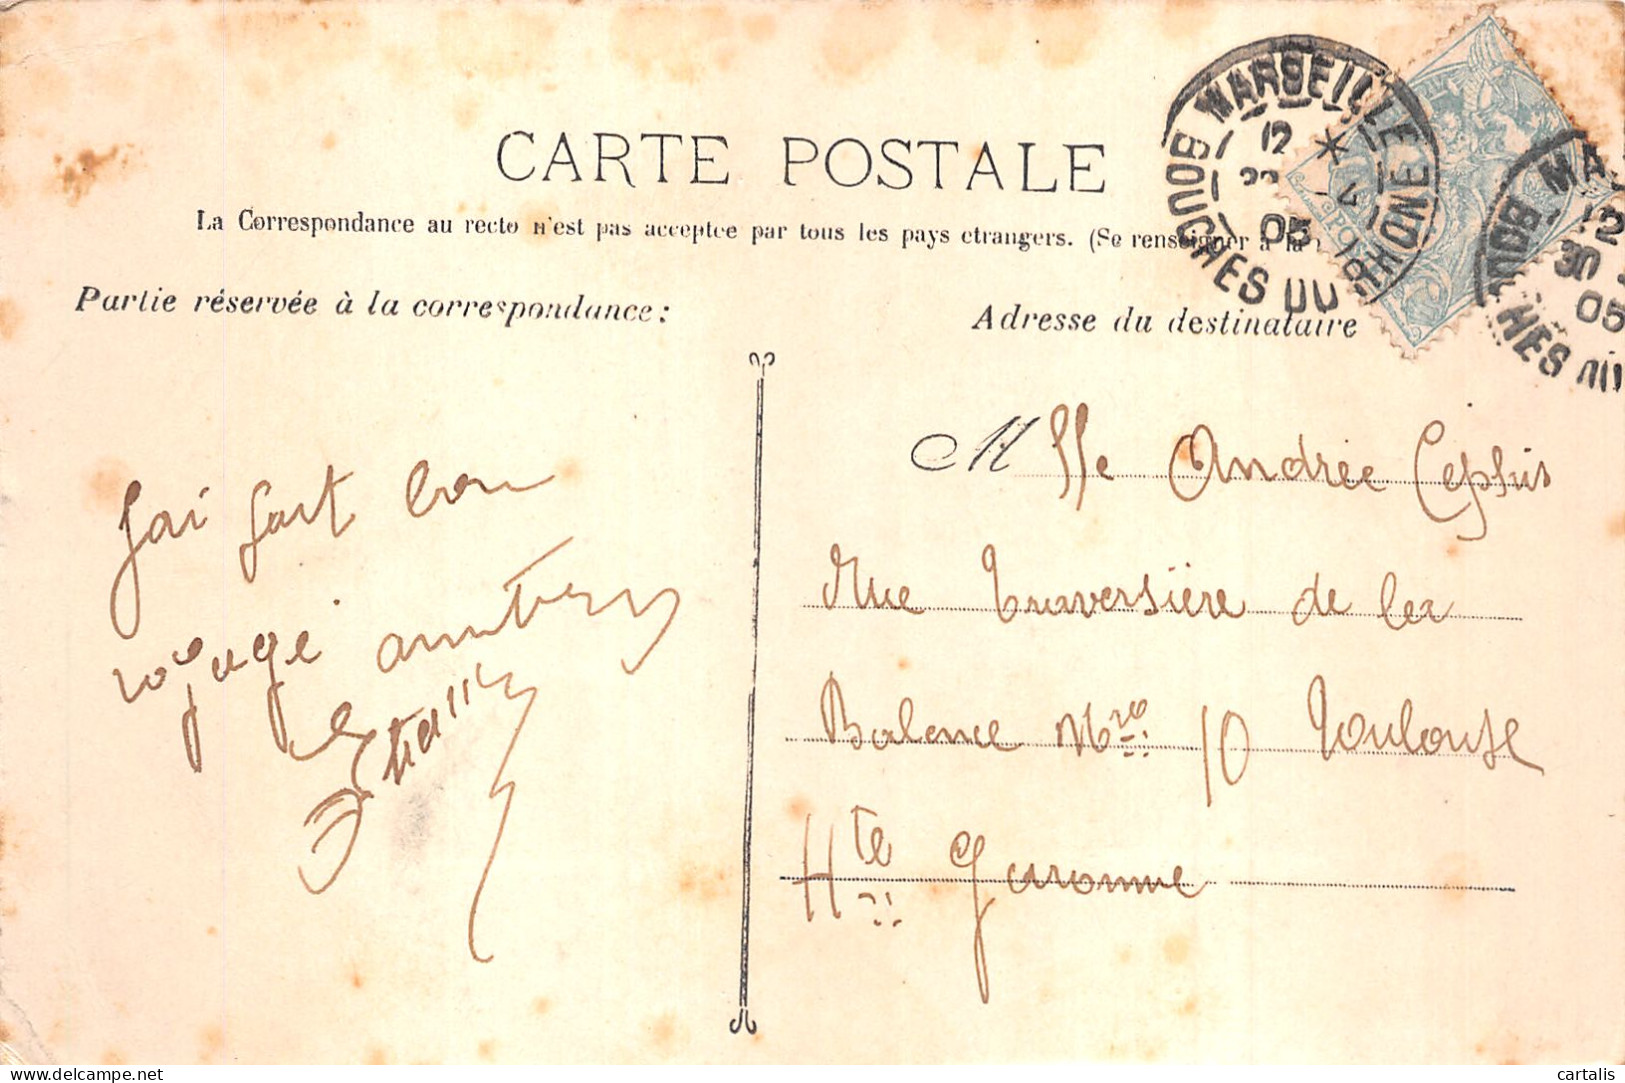 CARTE POSTALE
La Correspondance au recto n'est pas acceptée par tous les pays étrangers. (Se renseigner à la
Partie réservée à la correspondance:
Adresse du destinataire
MARSEILLE
12
05
BOUCHES DU RHONE
12
30
05
J'ai fait bon
voyage
Mlle Andrée
Rue Traversière de la
Balance Nro 10 Toulouse
Hte Garonne
cartalis